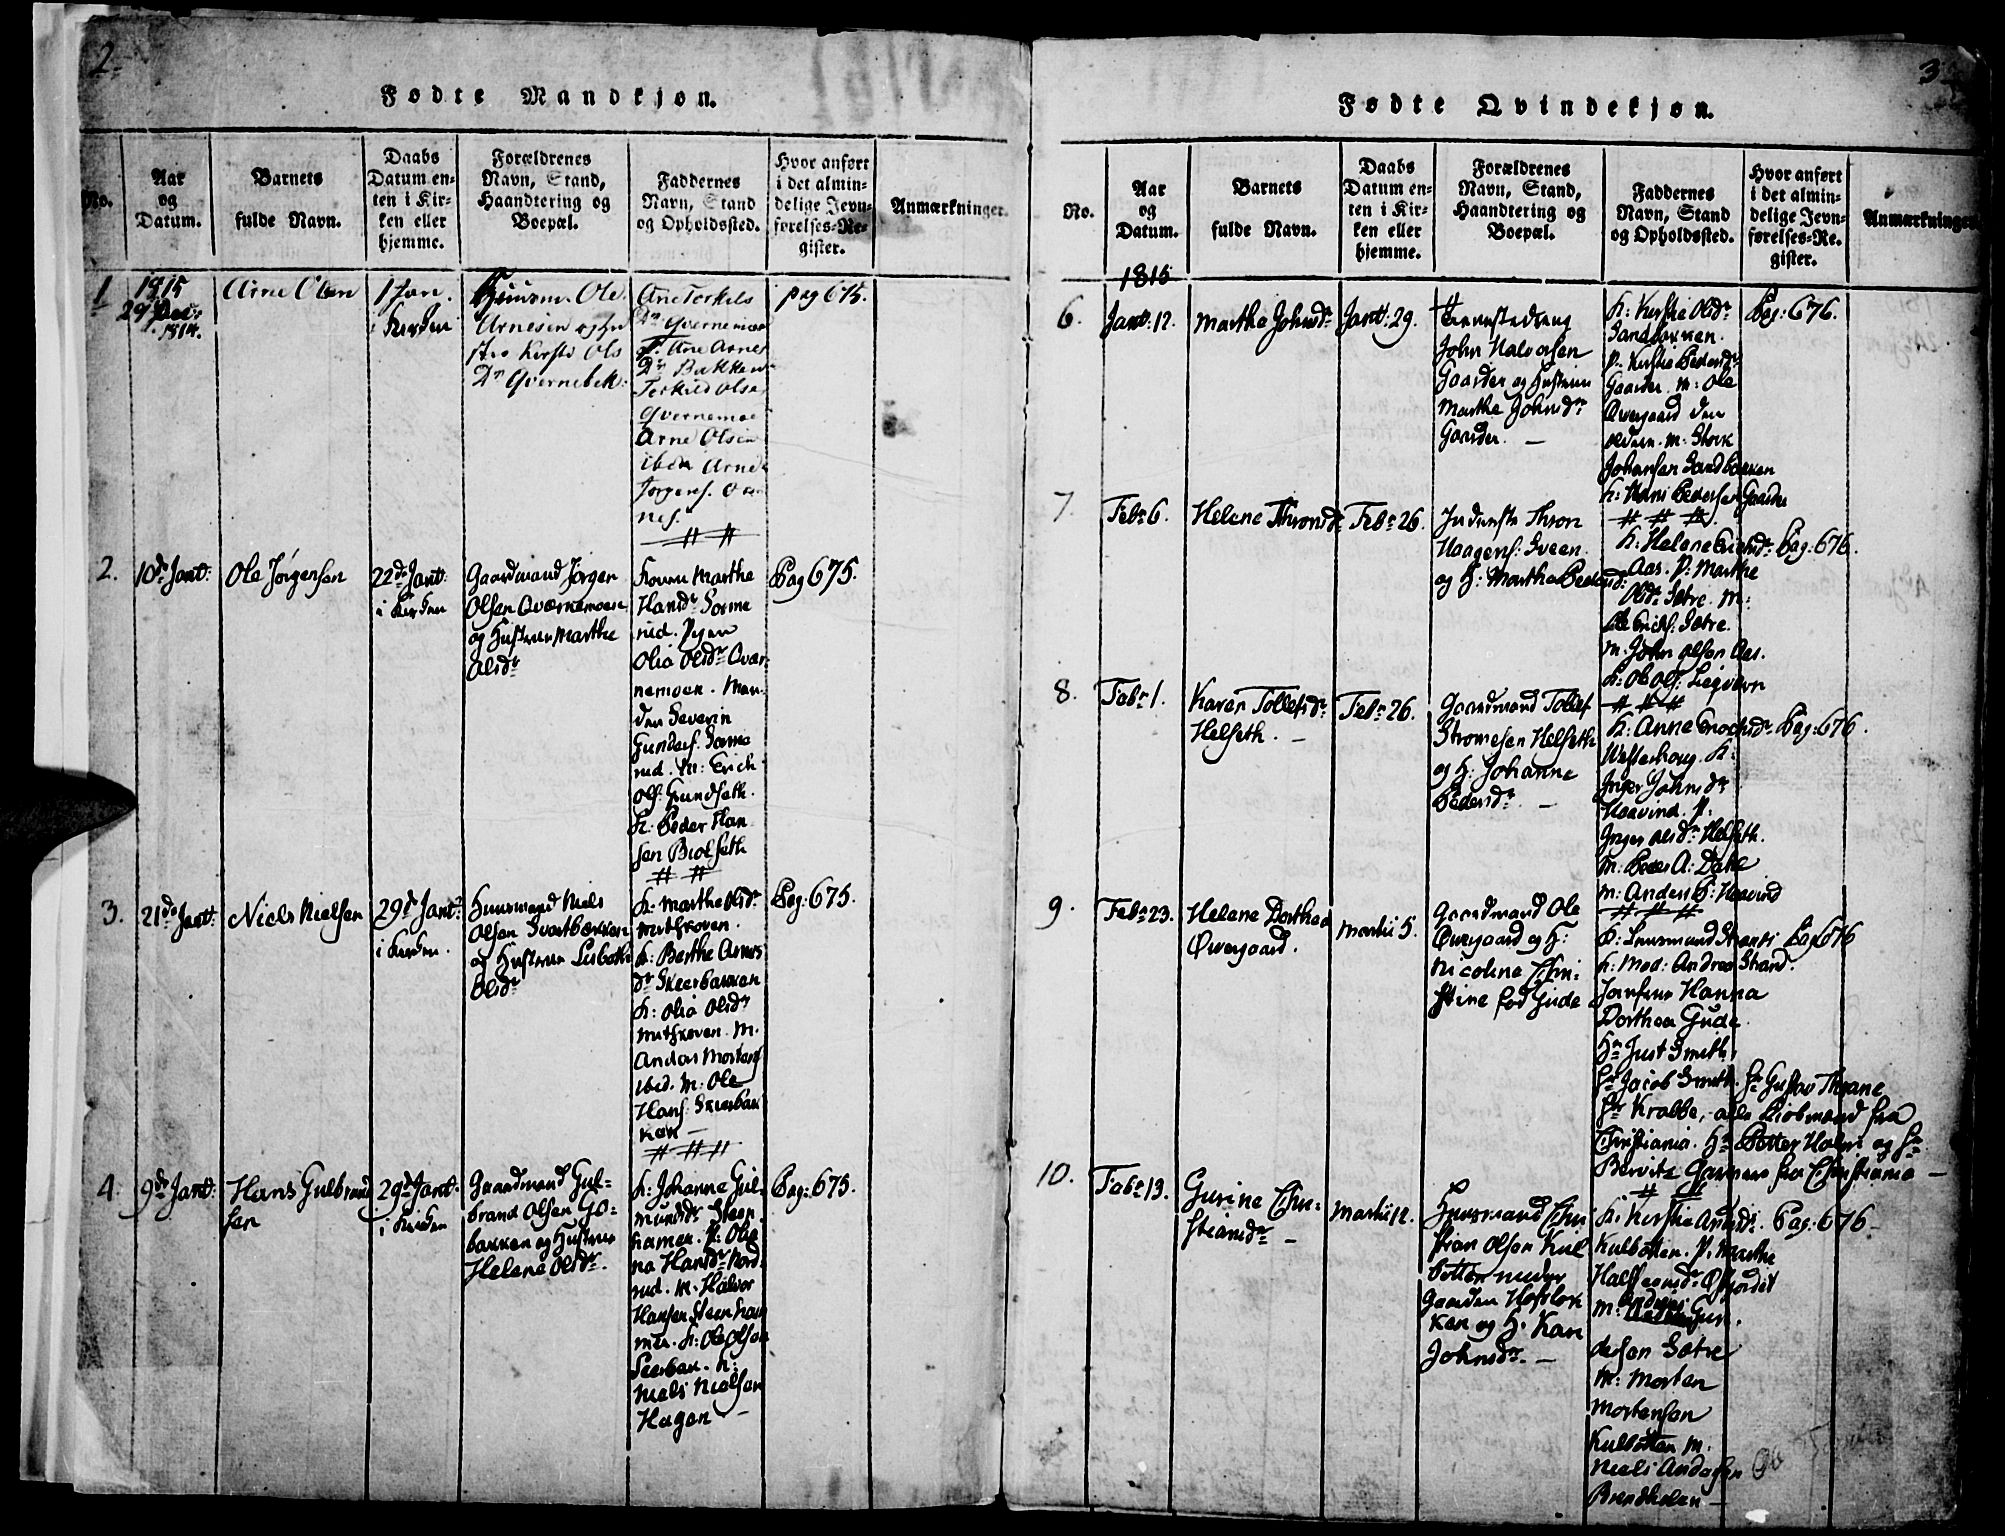 2.
Fodte Mandkjøn.
No.
Aar
og
Datum.
Barnets
fulde Navn.
Daabs
Datum en-
ten i Kir-
ken eller
hjemme.
Forældrenes
Navn, Stand,
Haandtering og
Boepæl.
Faddernes
Navn, Stand
og Opholdssted.
Hvor anført
i det almin-
delige Jevn-
førelses-Re-
gister.
Anmærkninger.
1
1815
29 Dec:
1814.
Arne Olsen
1 Jan.
i Kirken
Huusm. Ole
Arnesen og Hu
stro Kirsti Ols
Dr Qvernebek.
Ane Torkels
Dr Qvernemoe
P. Ane Arnes
Dr Bakken
Torkild Olse
Qvernemoe
Arne Olsen
ibdn Arne
Jørgens.
pag 675.
2.
10de Jant:
Ole Jørgensen
22de Jant:
i Kirken
Gaardmand Jørgen
Olsen Qværnemoen
og Hustrue Marthe
Olsdr
Konen Marthe
Hansdr Sorme
rud. Pigen
Olia Olsdr Qvær
nemoen. Man-
den Severin
Gunders. Sorme
rud. M: Erich
Ols: Grundseth.
K. Peder Han
sen Biølseth
Pag 675.
3.
21de Jant:
Niels Nielsen
29de Jant:
i Kirken.
Huusmand Niels
Olsen Svartbækken
og Hustrue Lisbeth
Olsdr
K: Marthe Olsdr
Mithskoven.
K: Berthe Arnes
dr Skierbækken
K: Olia Olsdr
Mithskoven. M.
Anders Mortens
ibid. M: Ole
Hans: Skierbæk
ken —
Pag: 675.
4.
9de Jant:
Hans Gulbrand
sen
29de Jant:
i Kirken
Gaardmand Gul-
brand Olsen Go-
bakken og Hustrue
Helene Olsdr.
K: Johanne Gul-
mundsdr Steen
hamer. P: Olia
na Hansdr Nord
rud. M: Halvor
Hansen Steenham
mer. K: Ole Olsen
K:
Niels Nielsen
Hagen —
Pag: 675.
3
Fødte Qvindekjøn.
No.
Aar
og
Datum.
Barnets
fulde Navn.
Daabs
Datum en-
ten i Kir-
ken eller
hjemme.
Forældrenes
Navn, Stand,
Haandtering og
Boepæl.
Faddernes
Navn, Stand
og Opholdssted.
Hvor anført
i det almin-
delige Jevn-
førelses-Re-
gister.
Anmærkninger
1815
6.
Jant: 12.
Marthe Johnsdr
Jant: 29.
John Halvorsen
Gaarder og Hustrue
Marthe Johnsdr
Gaarder. —
K: Kirstie Olsdr
Sandbakken.
P. Kirstie Pedersdr
Gaarder. M: Ole
Øvergaard den
ældere. M: Stork
Johansen Sandbakken
K: Hans Pedersen Gaarder
Pag: 676.
7
Febr 6.
Helene Thronsdr
Febr 26.
Inderste Thron
Haagens: Sveen
og H: Marthe Pedersdr:
K: Helene Erichsdr
Aas. P: Marthe
Olsdr Sætre. M:
Ole Erichs: Sætre.
M. John Olsen Aas.
K: Ole Ols: Liegvern
Pag: 676.
8.
Febr 1.
Karen Tollefsdr
Helseth. —
Febr 26.
Gaardmand Tollef
Stromesen Helseth
og H: Johanne
Pedersdr. —
K: Anne Enochsdr
Westerhoug. K:
Inger Johnsdr
Haavind. P.
Inger Olsdr Helseth.
M: Peder A: Dahle
M: Anders P: Haavind
Pag: 676.
9.
Febr 23.
Helene Dorthea
Øvergaard.
Martii 5.
Gaardmand Ole
Øvergaard og H:
Nicoline Chri-
stine fød Gude
K: Lensmand Strand
K: Mad: Andrea Strand.
Jomfrue Hanna
Dorthea Gude.
Hr Just Smith,
Hr Jacob Smith. Hr Gustav Thrane
Hr Krabbe, alle Kiøbmænd fra
Christiania. Hr Petter Holm og Hr
fra Christiania —
Pag 676
10.
Febr 13.
Gurine Chri-
stiansdr —
Martii 12.
Huusmand Chri
stian Olsen Kul
bøtten under
Gaarden Hofslok
ken og H. Kari
Johnsdr. —
K: Kirstie Amundsdr.
Kulbøtten. P. Marthe
M: Andreas Gun-
dersen Sætre
M: Morten
Mortensen
Kulbøtten M:
Niels Andersen
Brendholen —
Pag: 676